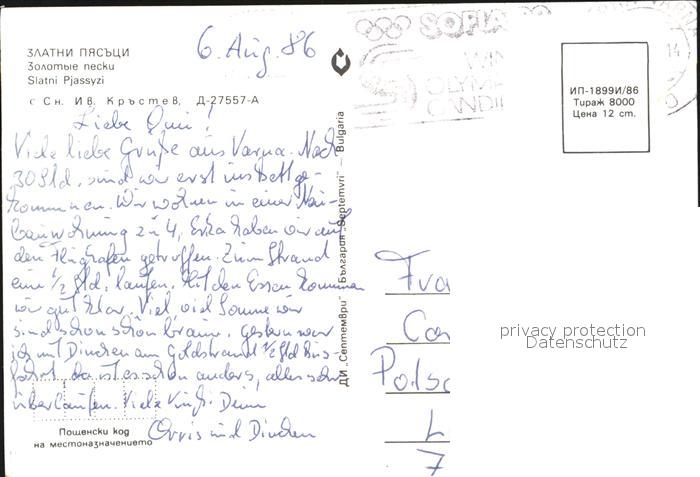 ЗЛАТНИ ПЯСЪЦИ
Золотые пески
Slatni Pjassyzi
с Сн. Ив. Кръстев, Д-27557-А
6. Aug. 86
Liebe Omi!
Viele liebe Grüße aus Varna. Nach
30 Std. sind wir erst ins Bett ge-
kommen. Wir wohnen in einer Neu-
bauwohnung zu 4, Erka haben wir auf
den Flughafen getroffen. Zum Strand
eine 1/2 Std. laufen. Mit dem Essen kommen
wir gut klar. Viel, viel Sonne wir
sind schon schön braun. Gestern war
ich mit Dinchen am Goldstrand 1/2 Std Bus-
fahrt, da ist es schön anders, alles sehr
überlaufen. Viele
und Dinchen
Пощенски код
на местоназначението
ДИ „Септември" — България "Septemvri" — Bulgaria
SOFIA
WIN
OLYMP
CANDI
14
ИП-1899И/86
Тираж 8000
Цена 12 ст.
Fra
Co
Potsd
L
7
privacy protection
Datenschutz